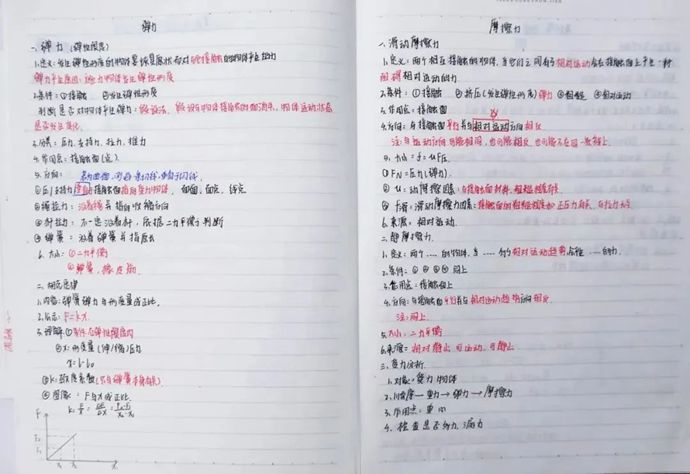 弹力
一、弹力（弹性形变）
1.定义：发生弹性形变的物体要恢复原状而对与它接触的物体产生的力
弹力产生原因：施力物体发生弹性形变
2.条件：①接触 ②发生弹性形变
判断是否对物体产生弹力：假设法，
是否发生变化
3.分类：压力、支持力、拉力、推力
4.作用点：接触面（点）
5.方向：
①压/支持力垂直接触面指向受力物体
②绳拉力：沿着绳并指向收缩方向
③杆拉力：不一定沿着杆，依据二力平衡判断
④弹簧：沿着弹簧并指原长
6.大小：①二力平衡
②弹簧、橡皮筋
二、胡克定律
1.内容：弹簧弹力与形变量成正比
2.公式：F=kx
3.理解：①条件：在弹性限度内
②x：形变量（伸/缩）
③k：劲度系数（只与弹簧本身有关）
④图象：F与x成正比
摩擦力
一、滑动摩擦力
1.定义：两个相互接触的物体，当它们之间有了相对运动会在接触面上产生一种
阻碍相对运动的力
2.条件：①接触 ②挤压（发生弹性形变）弹力 ③粗糙 ④相对运动
3.作用点：接触面
4.方向：与接触面平行并与相对运动方向相反
注：与运动方向可能相同，也可能相反，也可能不在同一直线上
5.大小：f=μFN
①FN=压力（弹力）
②μ：动摩擦因数：与接触面材料、粗糙程度有关
③f滑：滑动摩擦力
6.来源：相对运动
二、静摩擦力
1.定义：两个……的物体，当……有相对运动趋势
2.条件：①②③④同上
3.作用点：接触面上
4.方向：与接触面平行并与相对运动趋势方向相反
注：同上
5.大小：二力平衡
6.来源：相对静止 可运动，可静止
三、受力分析
1.对象：受力物体
2.顺序→重力→弹力→摩擦力
3.作用点：重心
4.检查是否多力、漏力